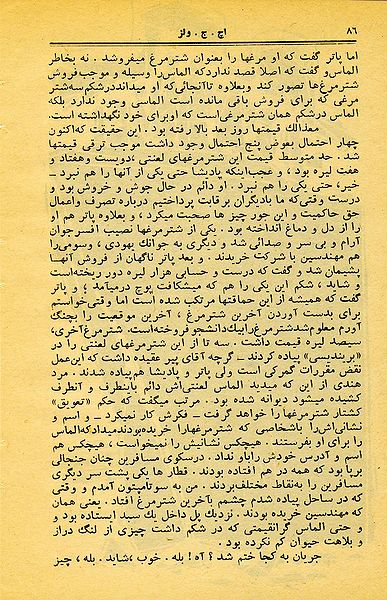 ۸۶
اچ . ج . ولز
اما پاتر گفت که او مرغها را بعنوان شترمرغ میفروشد . نه بخاطر
الماس و گفت که اصلا قصد ندارد که الماس را وسیله و موجب فروش
شترمرغ‌ها تصور کند وبعلاوه تا آنجائی که او میداند در شکم سه شتر
مرغی که برای فروش باقی مانده است الماسی وجود ندارد بلکه
الماس درشکم همان شترمرغی است که او برای خود نگهداشته است.
معذالك قیمتها روز بعد بالا رفته بود . این حقیقت که اکنون
چهار احتمال بعوض پنج احتمال وجود داشت موجب ترقی قیمتها
شد . حد متوسط قیمت این شترمرغهای لعنتی ، دویست وهفتاد و
هفت لیره بود ، و عجب اینکه پادیشا حتی یکی از آنها را هم نبرد ـ
خیر، حتی یکی را هم نبرد . او دائم در حال جوش و خروش بود و
درست وقتی که ما بادیگران برقابت پرداختیم درباره تصرف واعمال
حق حاکمیت و این جور چیز ها صحبت میکرد ، و بعلاوه پاتر هم او
را از دل و دماغ انداخته بود . یکی از شترمرغها نصیب افسر جوان
آرام و بی سر و صدائی شد و دیگری به جوانك یهودی ، وسومی را
هم مهندسین با شرکت خریدند . و بعد پاتر ناگهان از فروش آنهـا
پشیمان شد و گفت که درست و حسابی هزار لیره دور ریخته است
و شاید ، شکم این یکی را هم که میشکافت پوچ درمیآمد ؛ و پاتر
گفت که همیشه از این حماقتها مرتکب شده است اما وقتی خواستم
برای بدست آوردن آخرین شترمرغ ، آخرین موقعیت را بچنگ
آورم معلوم شد شترمرغ را بیك دانشجو فروخته است. شترمرغ آخری،
سیصد لیره قیمت داشت . سه تا از این شترمرغهای لعنتی را در
«بریندیسی» پیاده کردند ـ گرچه آقای پیر عقیده داشت که این عمل
نقض مقررات گمرکی است ولی پاتر و پادیشا هم پیاده شدند . مرد
هندی از این که میدید الماس لعنتی‌اش دائم باینطرف و آنطرف
کشیده میشود دیوانه شده بود . مرتب میگفت که حکم «تعویق»
کشتار شترمرغها را خواهد گرفت ـ فکرش کار نمیکرد ـ و اسم و
نشانی‌اش را باشخاصی که شترمرغها را خریده بودند میداد که الماس
را برای او بفرستند . هیچکس نشانیش را نمیخواست ، هیچکس هم
اسم و آدرس خودش را باو نداد . درسکوی مسافرین چنان جنجالی
برپا بود که همه در هم افتاده بودند. قطار ها یکی پشت سر دیگری
مسافرین را به نقاط مختلف بردند . من به سوتامپتون آمدم و وقتی
که در ساحل پیاده شدم چشمم بآخرین شترمرغ افتاد . یعنی همان
که مهندسین خریده بودند . نزدیك پل داخل یك سبد ایستاده بود و
و حتی الماس گرانقیمتی که در شکم داشت چیزی از لنگ دراز
و بلاهت حیوان کم نکرده بود .
جریان به کجا ختم شد ؟ آه ! بله . خوب ، شاید . بله ، چیز